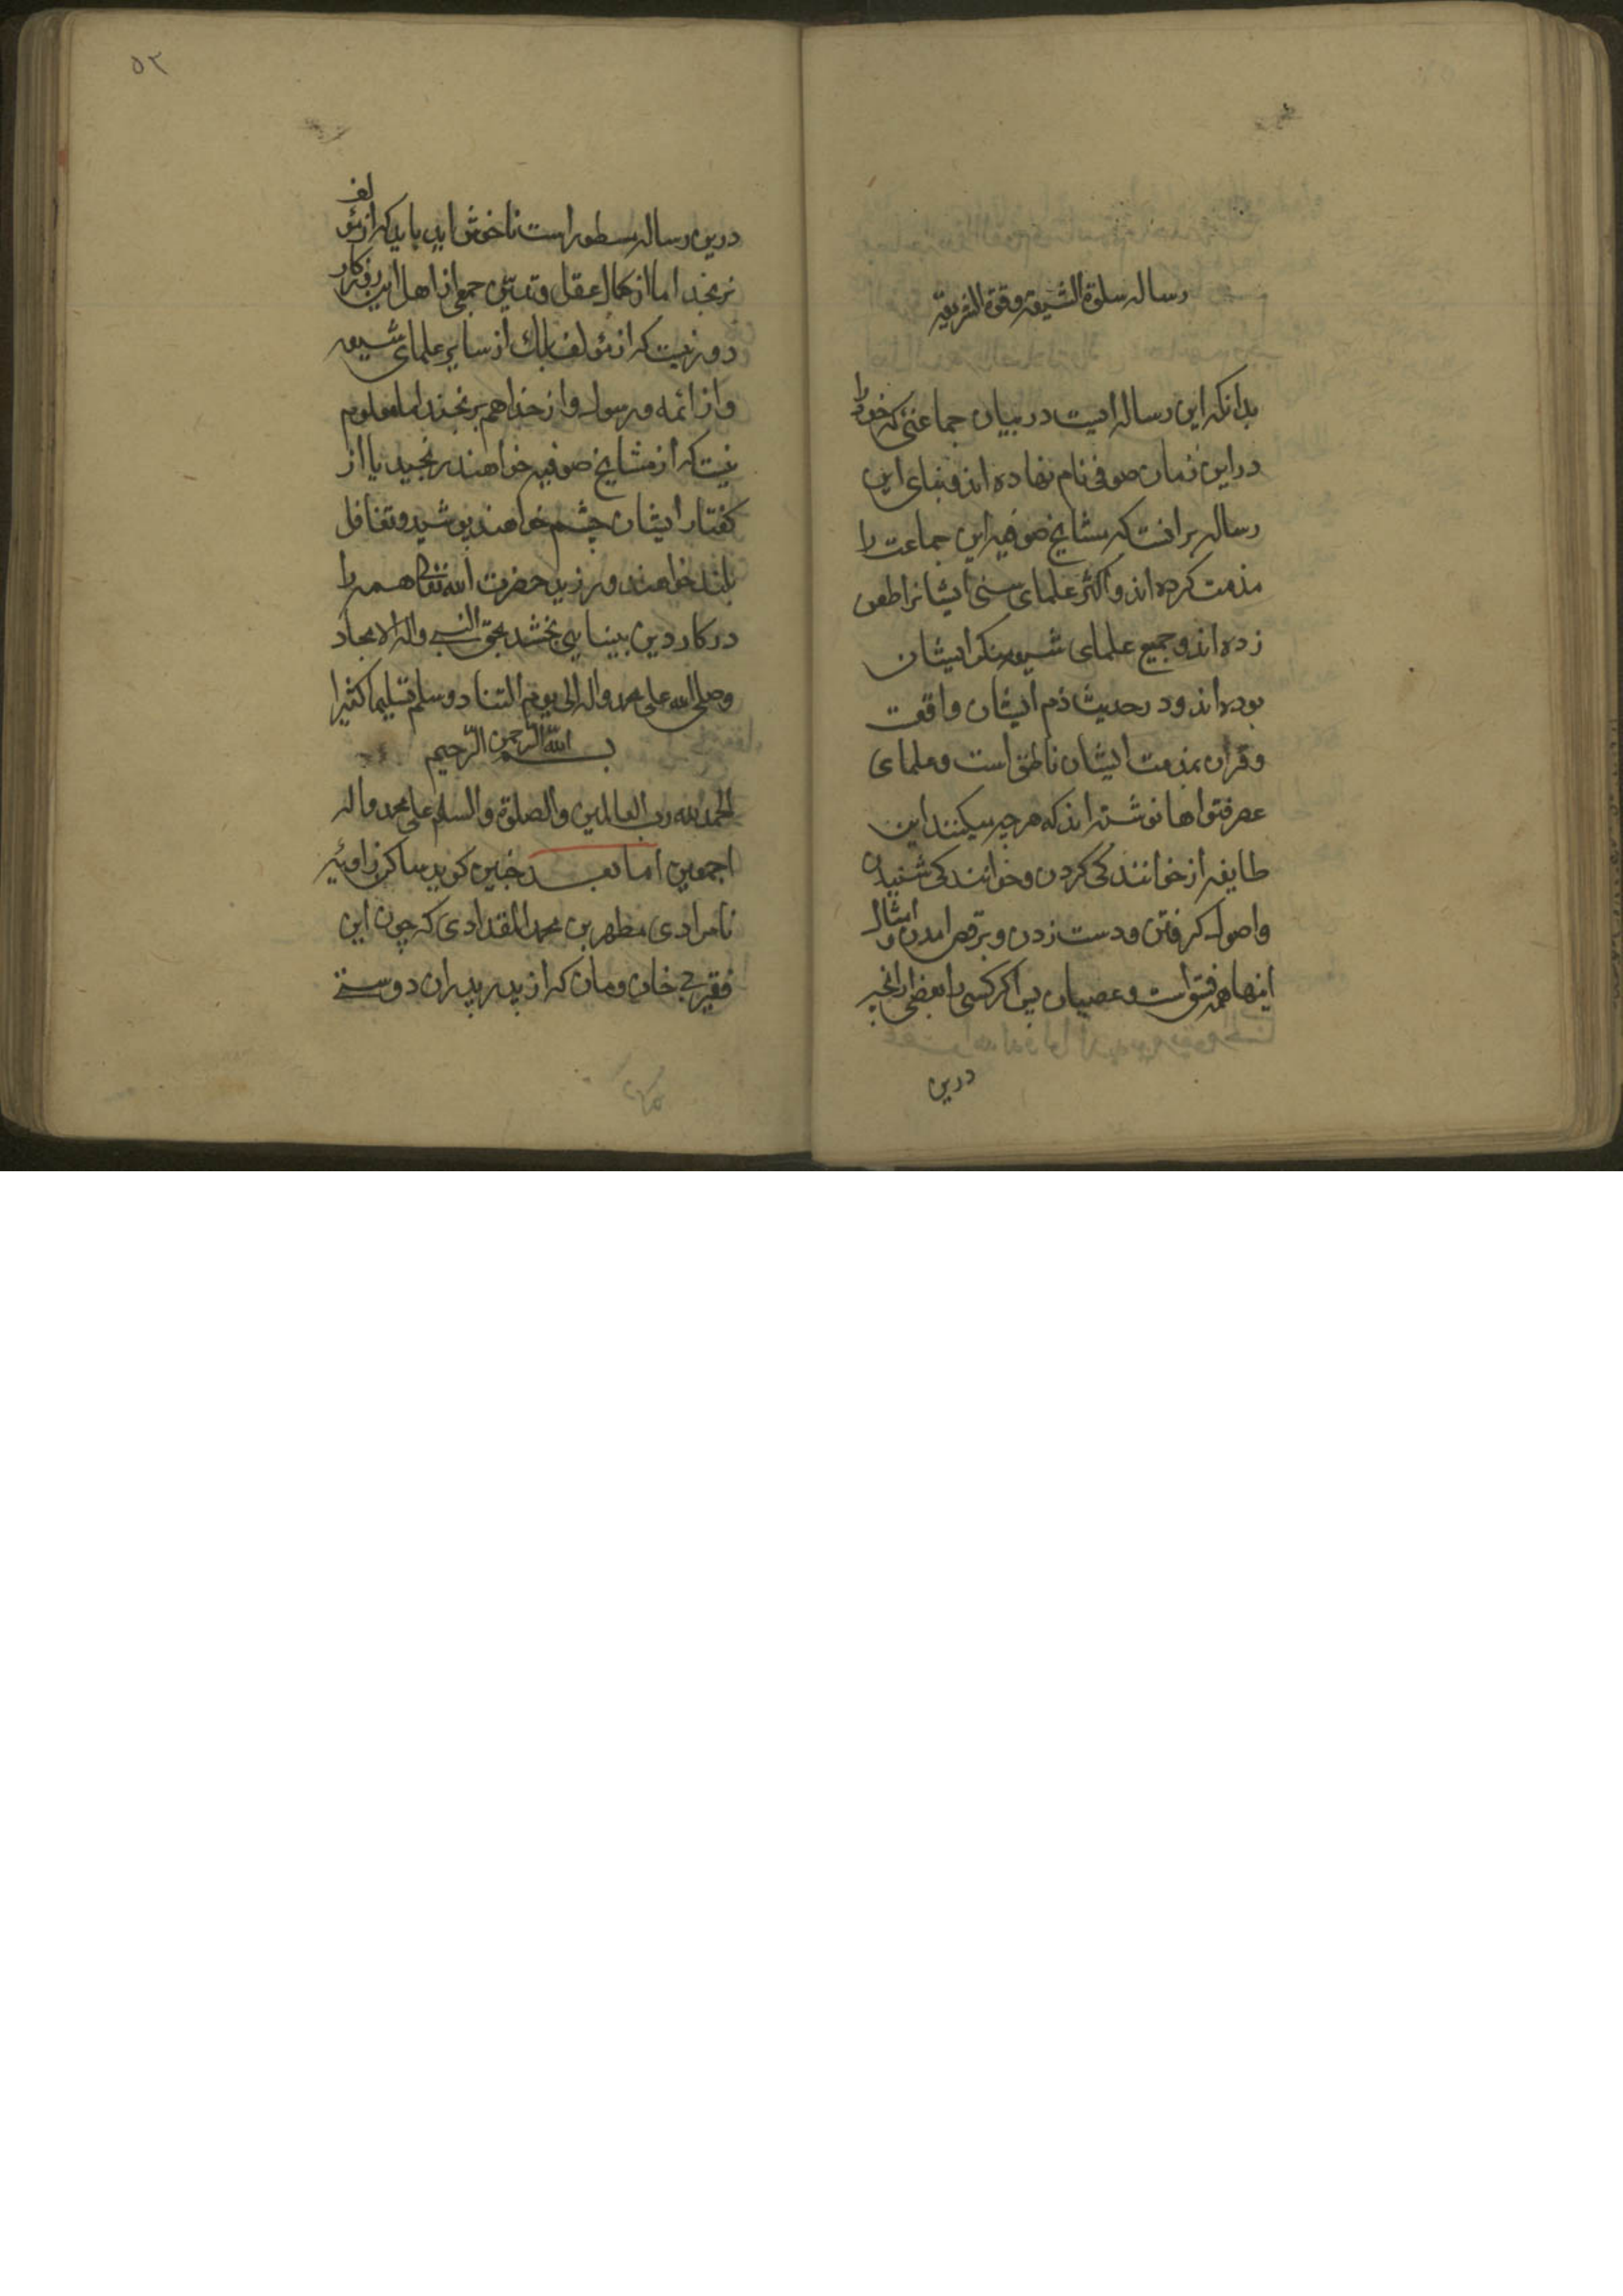 رساله سلوة الشیعه وقوة الشریعه
بدانکه این رساله ایست در بیان جماعتی که خود را
در این زمان صوفی نام نهاده اند و بنای این
رساله بر انست که مشایخ صوفیه این جماعت را
مذمت کرده اند و اکثر علمای سنی ایشانرا طعن
زده اند و جمیع علمای شیعه منکر ایشان
بوده اند و در حدیث ذم ایشان واقعت
وقران بمذمت ایشان ناطق است و علمای
عصر فتواها نوشته اند که هر چه میکنند این
طایفه از خوانندکی کردن و خوانندکی شنیدن
واصول کرفتن و دست زدن و برقص امدن و امثال
اینها همه فسق است و عصیان پس اکر کسی را بعضی از انچه
درین
۵۳
درین رساله مسطور است ناخوش اید باید که از مؤلف
نرنجد اما از کمال عقل و تدین جمعی از اهل این روزکار
دور نیست که از مؤلف بلک از سایر علمای شیعه
و از ائمه و رسول و از خدا هم برنجند اما معلوم
نیست که از مشایخ صوفیه خواهند رنجید یا از
کفتار ایشان چشم خواهند پوشید و تغافل
بلند خواهند ورزید حضرت الله تعالی همه را
در کار دین بینایی بخشد بحق النبی واله الامجاد
وصلی الله علی محمد واله الی یوم التناد وسلم تسلیما کثیرا
بسم الله الرحمن الرحیم
الحمد لله رب العالمین والصلوة والسلم علی محمد واله
اجمعین اما بعد چنین کوید ساکن زاویه
نامرادی مطهر بن محمد المقدادی که چون این
فقیر بی خان ومان که از پدر پدران دوستی